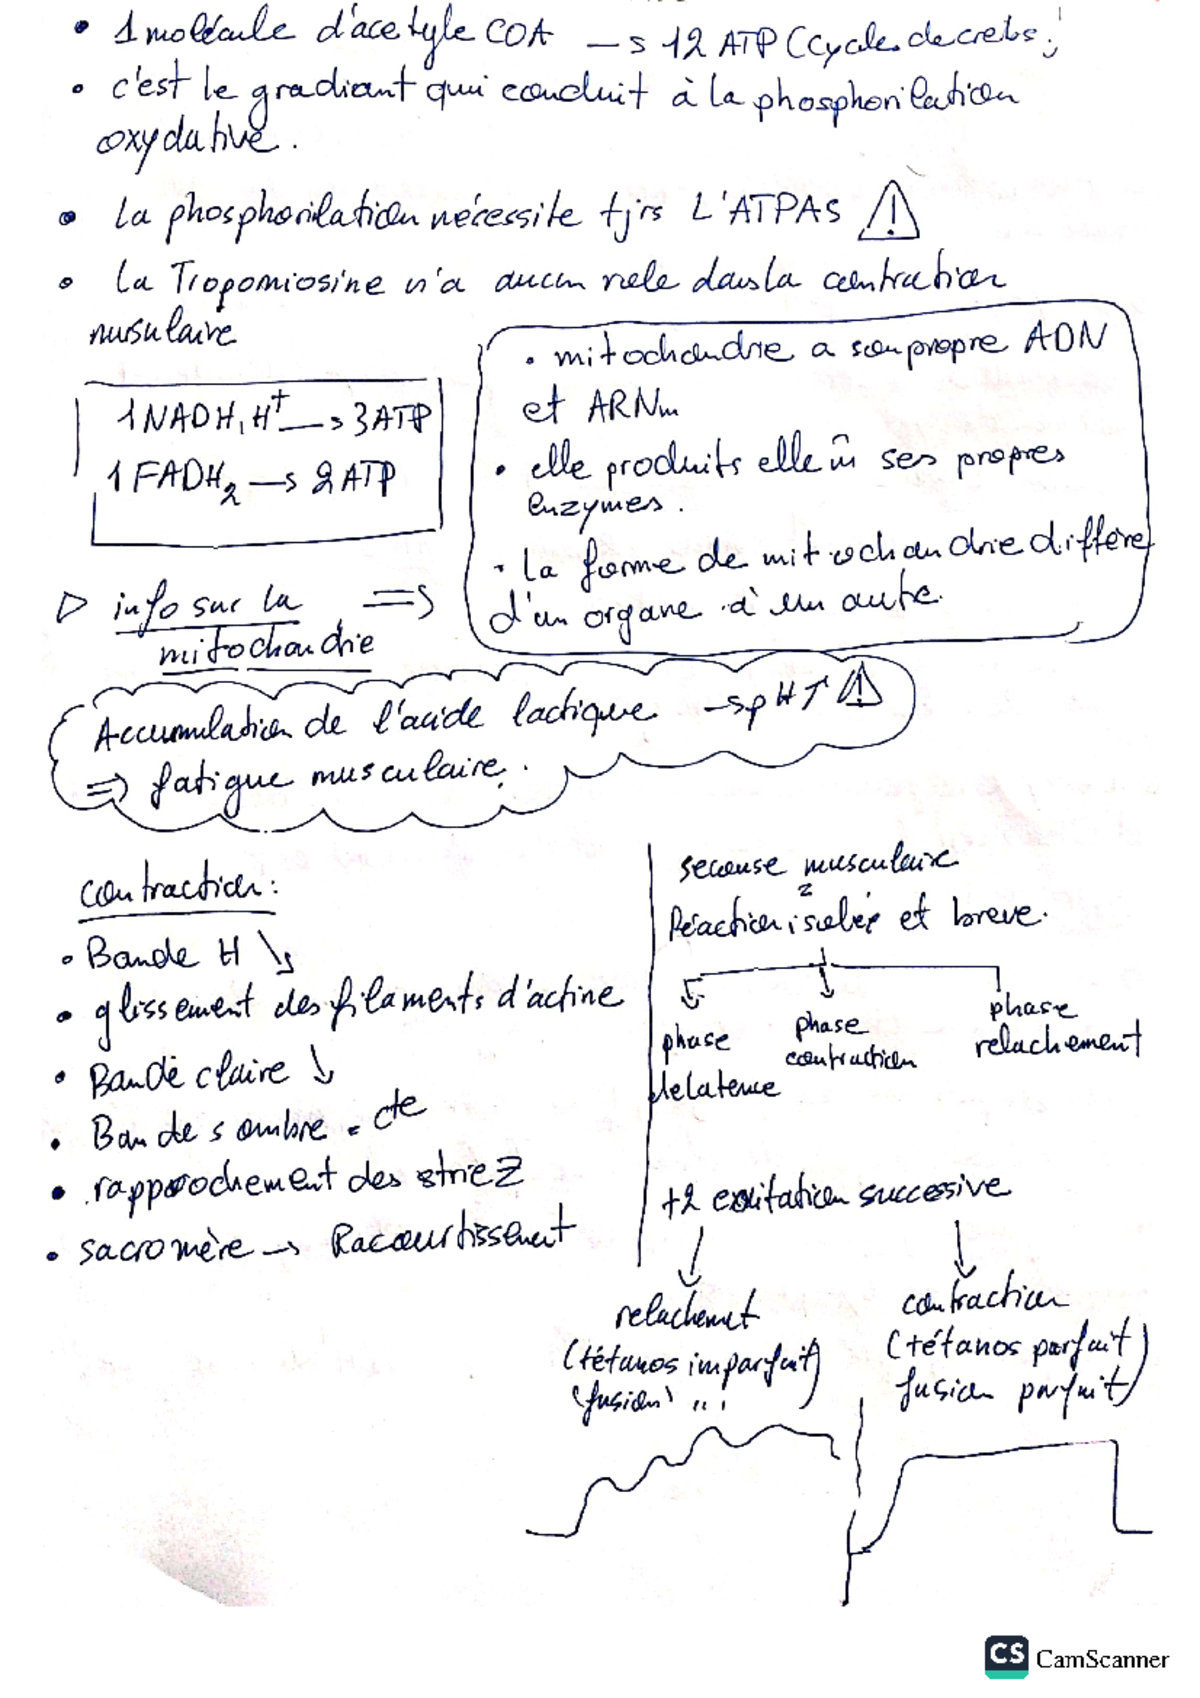 • 1 molécule d'acetyle COA → 12 ATP (Cycle de crebs)!
• c'est le gradiant qui conduit à la phosphorilation
oxydative.
• La phosphorilation nécessite tjrs L'ATPAS ⚠
• La Tropomiosine n'a aucun role dans la contraction
musulaire
1 NADH, H⁺ → 3 ATP
1 FADH₂ → 2 ATP
▷ info sur la mitochondrie ⇒
• mitochondrie a son propre ADN
et ARNm
• elle produits elle m̂ ses propres
enzymes.
• La forme de mitochondrie differe
d'un organe à un autre.
Accumulation de l'acide lactique → pH ↑ ⚠
⇒ fatigue musculaire.
contraction:
• Bande H ↘
• glissement des filaments d'actine
• Bande claire ↓
• Bande sombre = cte
• rapprochement des strie Z
• sacromère → Racourtissement
secouse musculaire
Réaction isolée et breve.
phase
de latence
phase
contraction
phase
relachement
+2 exitation successive
relachemet
(tétanos imparfait)
(fusion) " "
contraction
(tétanos parfait)
fusion parfait)
CS CamScanner